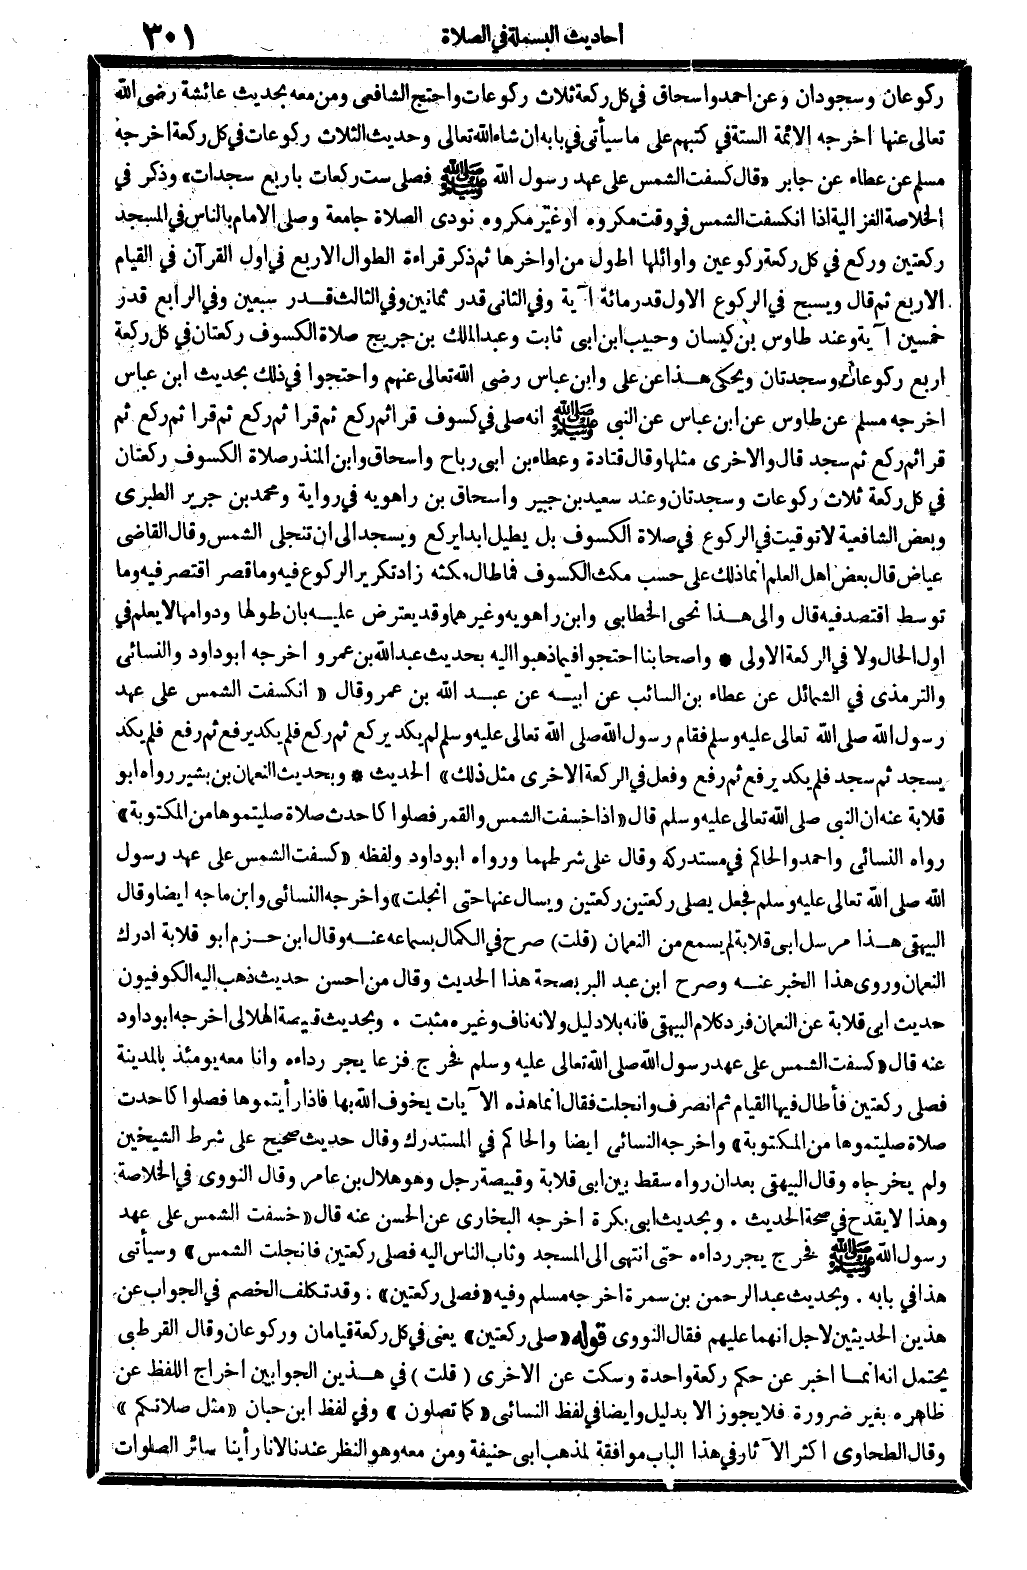 أحاديث البسملة في الصلاة ٣٠١
ركوعان وسجودان وعن احمد واسحاق في كل ركعة ثلاث ركوعات واحتج الشافعى ومن معه بحديث عائشة رضى الله
تعالى عنها اخرجه الائمة الستة في كتبهم على ما سيأتى في بابه ان شاء الله تعالى وحديث الثلاث ركوعات في كل ركعة اخرجه
مسلم عن عطاء عن جابر «قال كسفت الشمس على عهد رسول الله ﷺ فصلى ست ركعات باربع سجدات» وذكر في
الخلاصة الغزالية اذا انكسفت الشمس في وقت مكروه او غير مكروه نودى الصلاة جامعة وصلى الامام بالناس في المسجد
ركعتين وركع في كل ركعة ركوعين واوائلها اطول من اواخرها ثم ذكر قراءة الطوال الاربع في اول القرآن في القيام
الاربع ثم قال ويسبح في الركوع الاول قدر مائة آية وفي الثانى قدر ثمانين وفي الثالث قدر سبعين وفي الرابع قدر
خمسين آية وعند طاوس بن كيسان وحبيب ابن ابى ثابت وعبد الملك بن جريج صلاة الكسوف ركعتان في كل ركعة
اربع ركوعات وسجدتان ويحكى هذا عن على وابن عباس رضى الله تعالى عنهم واحتجوا في ذلك بحديث ابن عباس
اخرجه مسلم عن طاوس عن ابن عباس عن النبى ﷺ انه صلى في كسوف قرا ثم ركع ثم قرا ثم ركع ثم قرا ثم ركع ثم
قرا ثم ركع ثم سجد قال والاخرى مثلها وقال قتادة وعطاء بن ابى رباح واسحاق وابن المنذر صلاة الكسوف ركعتان
في كل ركعة ثلاث ركوعات وسجدتان وعند سعيد بن جبير واسحاق بن راهويه في رواية ومحمد بن جرير الطبرى
وبعض الشافعية لا توقيت في الركوع في صلاة الكسوف بل يطيل ابدا يركع ويسجد الى ان تنجلى الشمس وقال القاضى
عياض قال بعض اهل العلم انما ذلك على حسب مكث الكسوف فما طال مكثه زاد تكرير الركوع فيه وما قصر اقتصر فيه وما
توسط اقتصد فيه قال والى هذا نحى الخطابى وابن راهويه وغيرهما وقد يعترض عليه بان طولها ودوامها لا يعلم في
اول الحال ولا في الركعة الاولى * واصحابنا احتجوا فيما ذهبوا اليه بحديث عبد الله بن عمرو اخرجه ابو داود والنسائى
والترمذى في الشمائل عن عطاء بن السائب عن ابيه عن عبد الله بن عمر وقال « انكسفت الشمس على عهد
رسول الله صلى الله تعالى عليه وسلم فقام رسول الله صلى الله تعالى عليه وسلم لم يكد يركع ثم ركع فلم يكد يرفع ثم رفع فلم يكد
يسجد ثم سجد فلم يكد يرفع ثم رفع وفعل في الركعة الاخرى مثل ذلك» الحديث * وبحديث النعمان بن بشير رواه ابو
قلابة عنه ان النبى صلى الله تعالى عليه وسلم قال «اذا خسفت الشمس والقمر فصلوا كاحدث صلاة صليتموها من المكتوبة»
رواه النسائى واحمد والحاكم في مستدركه وقال على شرطهما ورواه ابو داود ولفظه «كسفت الشمس على عهد رسول
الله صلى الله تعالى عليه وسلم فجعل يصلى ركعتين ركعتين ويسال عنها حتى انجلت» واخرجه النسائى وابن ماجه ايضا وقال
البيهقى هذا مرسل ابى قلابة لم يسمع من النعمان (قلت) صرح في الكمال بسماعه عنه وقال ابن حزم ابو قلابة ادرك
النعمان وروى هذا الخبر عنه وصرح ابن عبد البر بصحة هذا الحديث وقال من احسن حديث ذهب اليه الكوفيون
حديث ابى قلابة عن النعمان فرد كلام البيهقى فانه بلا دليل ولانه ناف وغيره مثبت . وبحديث قبيصة الهلالى اخرجه ابو داود
عنه قال «كسفت الشمس على عهد رسول الله صلى الله تعالى عليه وسلم فخرج فزعا يجر رداءه وانا معه يومئذ بالمدينة
فصلى ركعتين فأطال فيها القيام ثم انصرف وانجلت فقال انما هذه الآيات يخوف الله بها فاذا رأيتموها فصلوا كاحدث
صلاة صليتموها من المكتوبة» واخرجه النسائى ايضا والحاكم في المستدرك وقال حديث صحيح على شرط الشيخين
ولم يخرجاه وقال البيهقى بعد ان رواه سقط بين ابى قلابة وقبيصة رجل وهو هلال بن عامر وقال النووى في الخلاصة
وهذا لا يقدح في صحة الحديث . وبحديث ابى بكرة اخرجه البخارى عن الحسن عنه قال «خسفت الشمس على عهد
رسول الله ﷺ فخرج يجر رداءه حتى انتهى الى المسجد وثاب الناس اليه فصلى ركعتين فانجلت الشمس» وسيأتى
هذا في بابه . وبحديث عبد الرحمن بن سمرة اخرجه مسلم وفيه «فصلى ركعتين» . وقد تكلف الخصم في الجواب عن
هذين الحديثين لاجل انهما عليهم فقال النووى قوله «صلى ركعتين» يعنى في كل ركعة قيامان وركوعان وقال القرطبى
يحتمل انه انما اخبر عن حكم ركعة واحدة وسكت عن الاخرى (قلت) في هذين الجوابين اخراج اللفظ عن
ظاهره بغير ضرورة فلا يجوز الا بدليل وايضا في لفظ النسائى «كما تصلون» وفي لفظ ابن حبان «مثل صلاتكم»
وقال الطحاوى اكثر الآثار في هذا الباب موافقة لمذهب ابى حنيفة ومن معه وهو النظر عندنا لانا رأينا سائر الصلوات